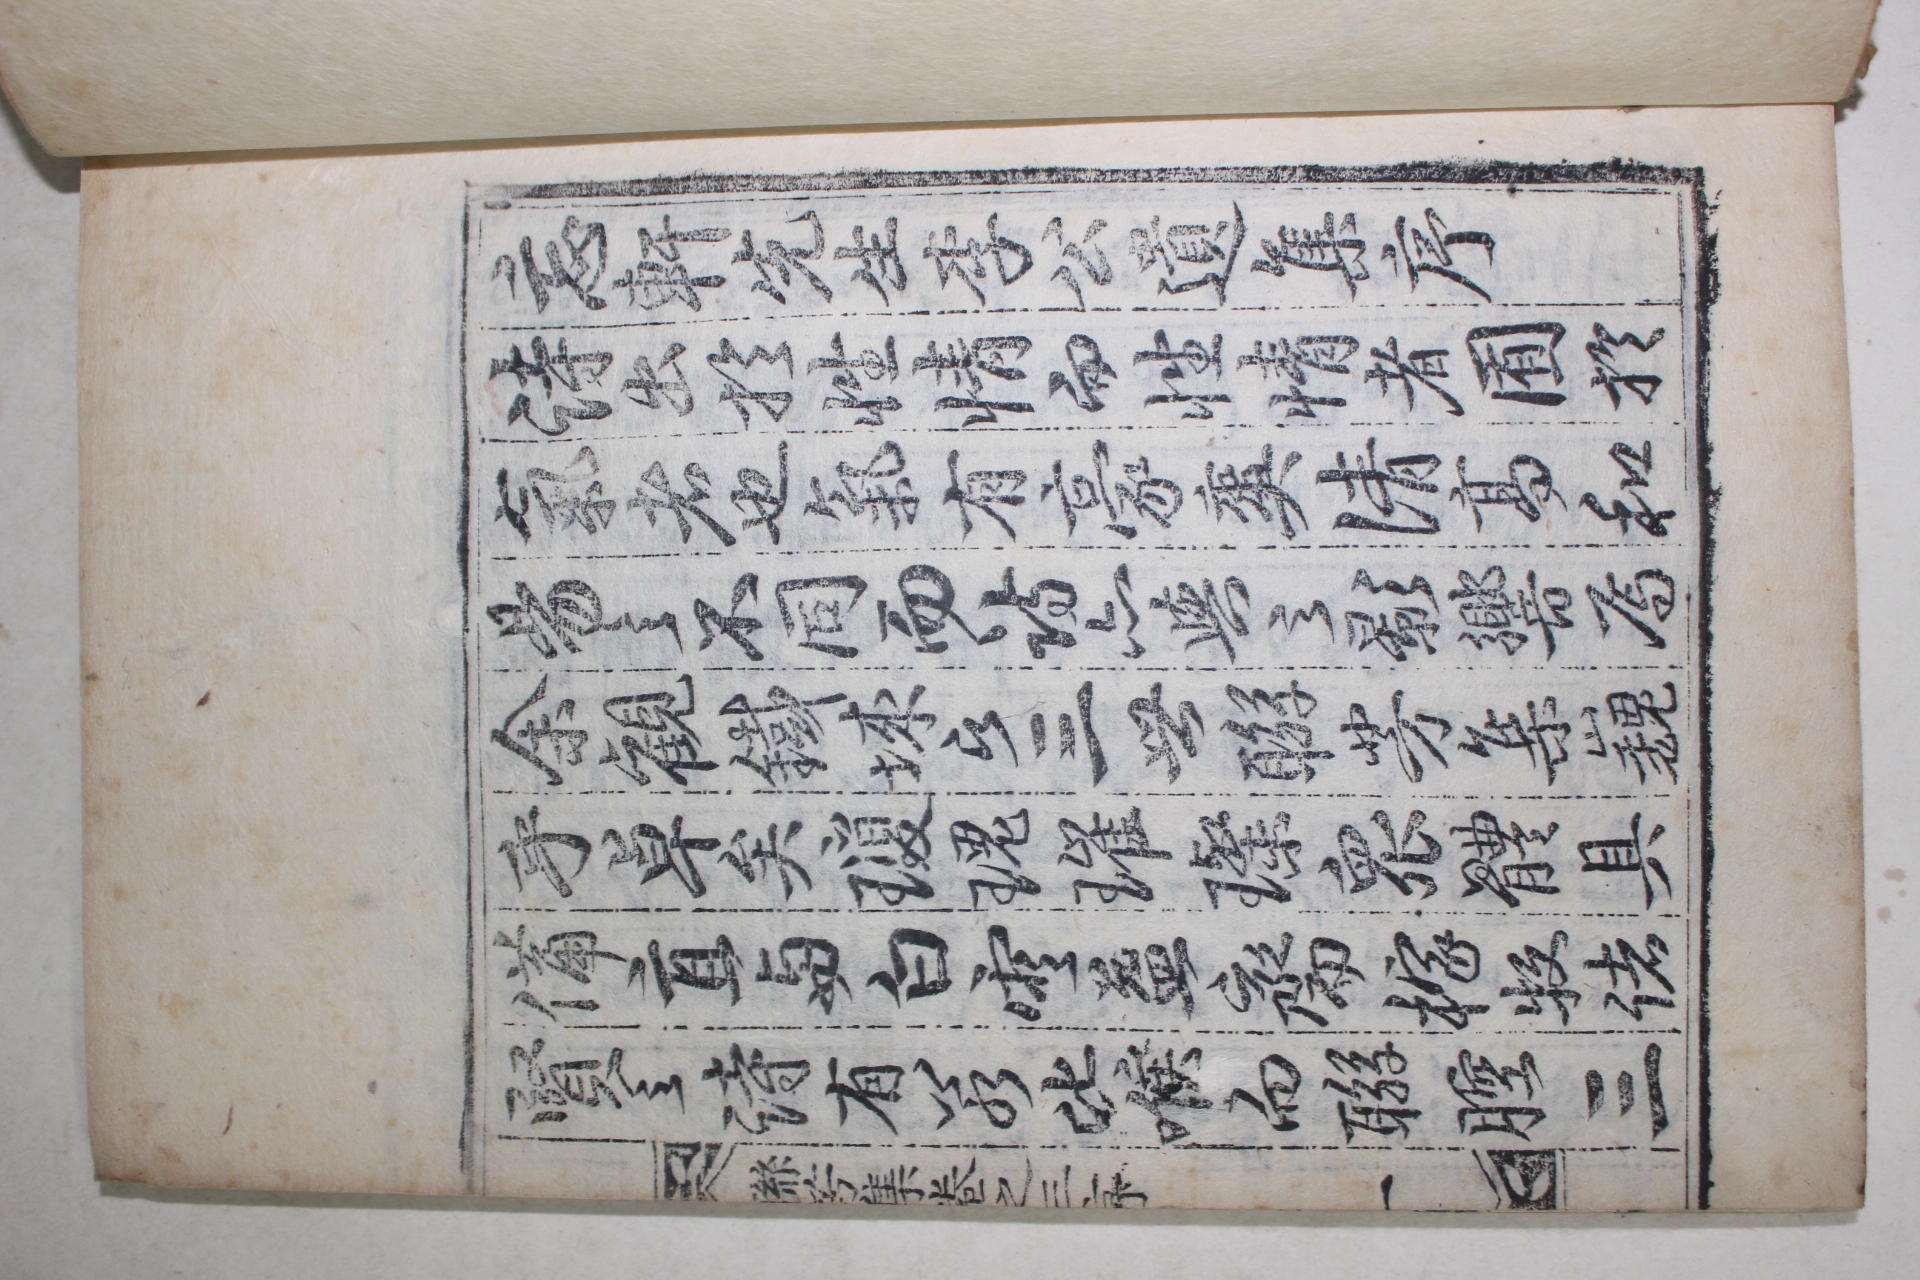 忘軒先生李公遺集序
詩出於性情而性情者囿於
氣者也氣有豪爽清高和
易之不同而詩亦與之影響焉
余觀鐵城氏三世聯芳集巍
乎卓矣瓊瑰璀璨衆體具
備直與白雲益齋稼牧諸
賢之詩有若比喉而聯脛三
聯芳集卷之三序
一